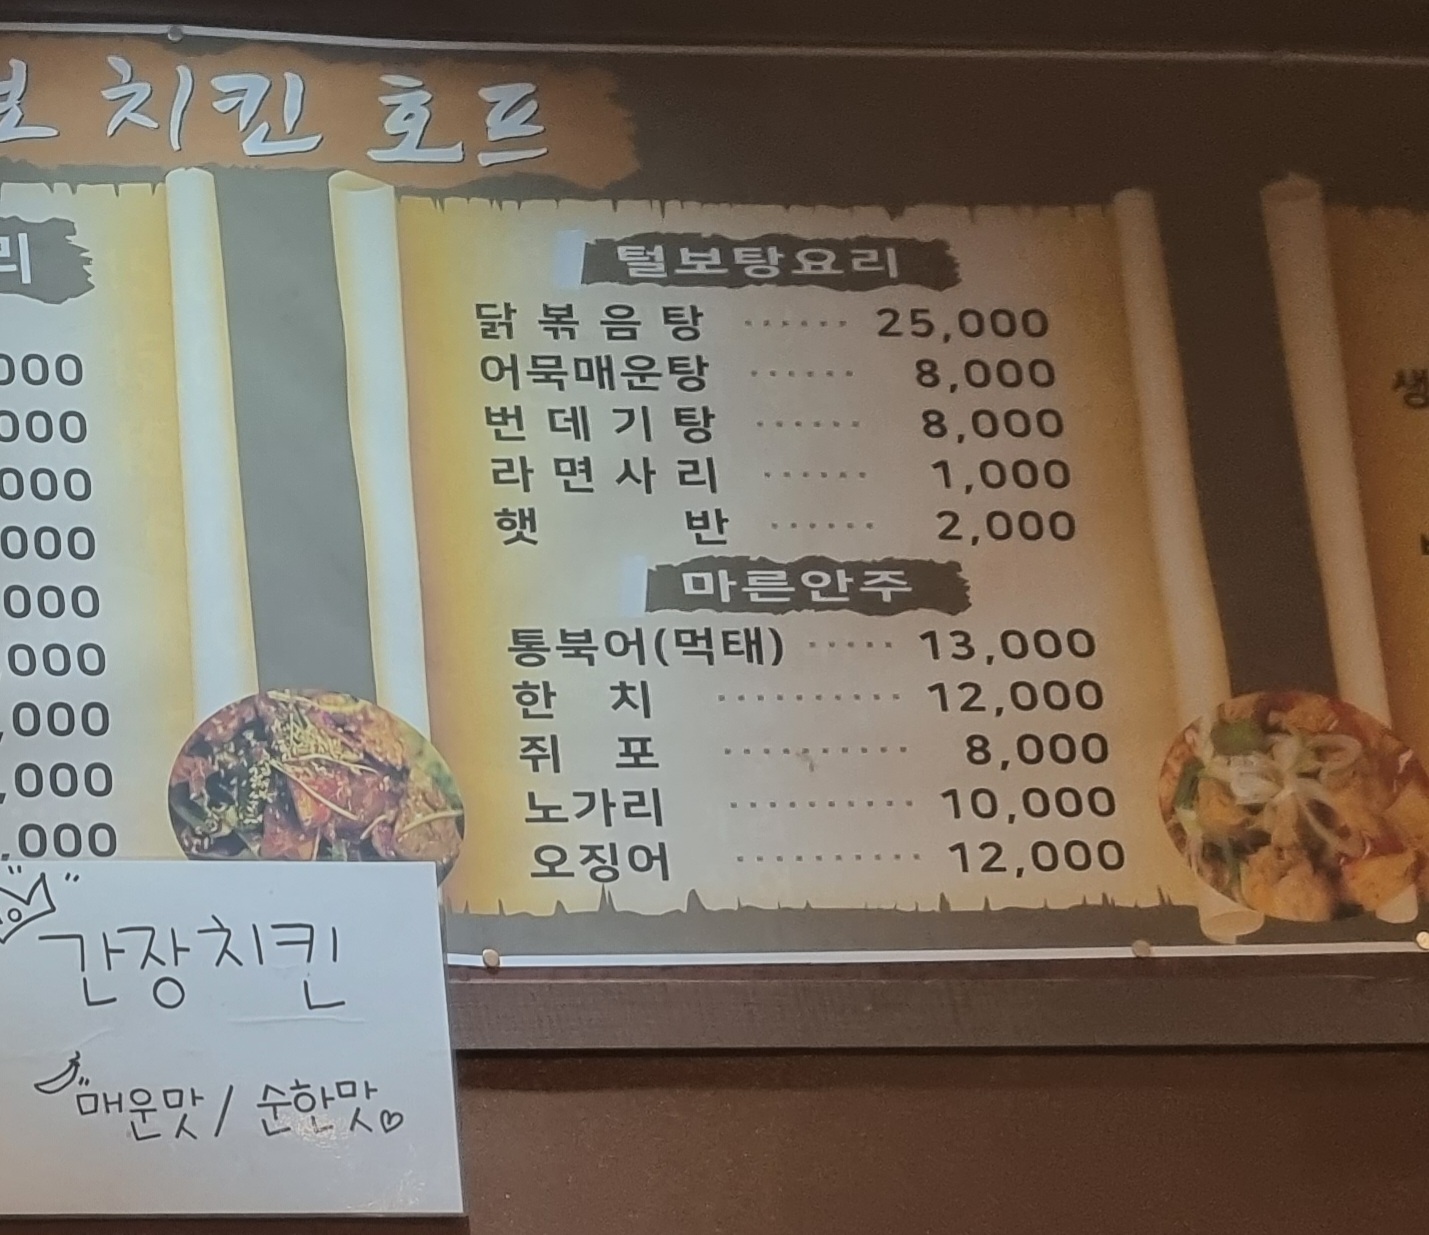 치킨 호프
리
000
000
000
000
000
000
,000
,000
,000
털보탕요리
닭볶음탕 ······ 25,000
어묵매운탕 ······ 8,000
번데기탕 ······ 8,000
라면사리 ······ 1,000
햇반 ······ 2,000
마른안주
통북어(먹태) ····· 13,000
한치 ·········· 12,000
쥐포 ·········· 8,000
노가리 ·········· 10,000
오징어 ·········· 12,000
생
간장치킨
매운맛/순한맛